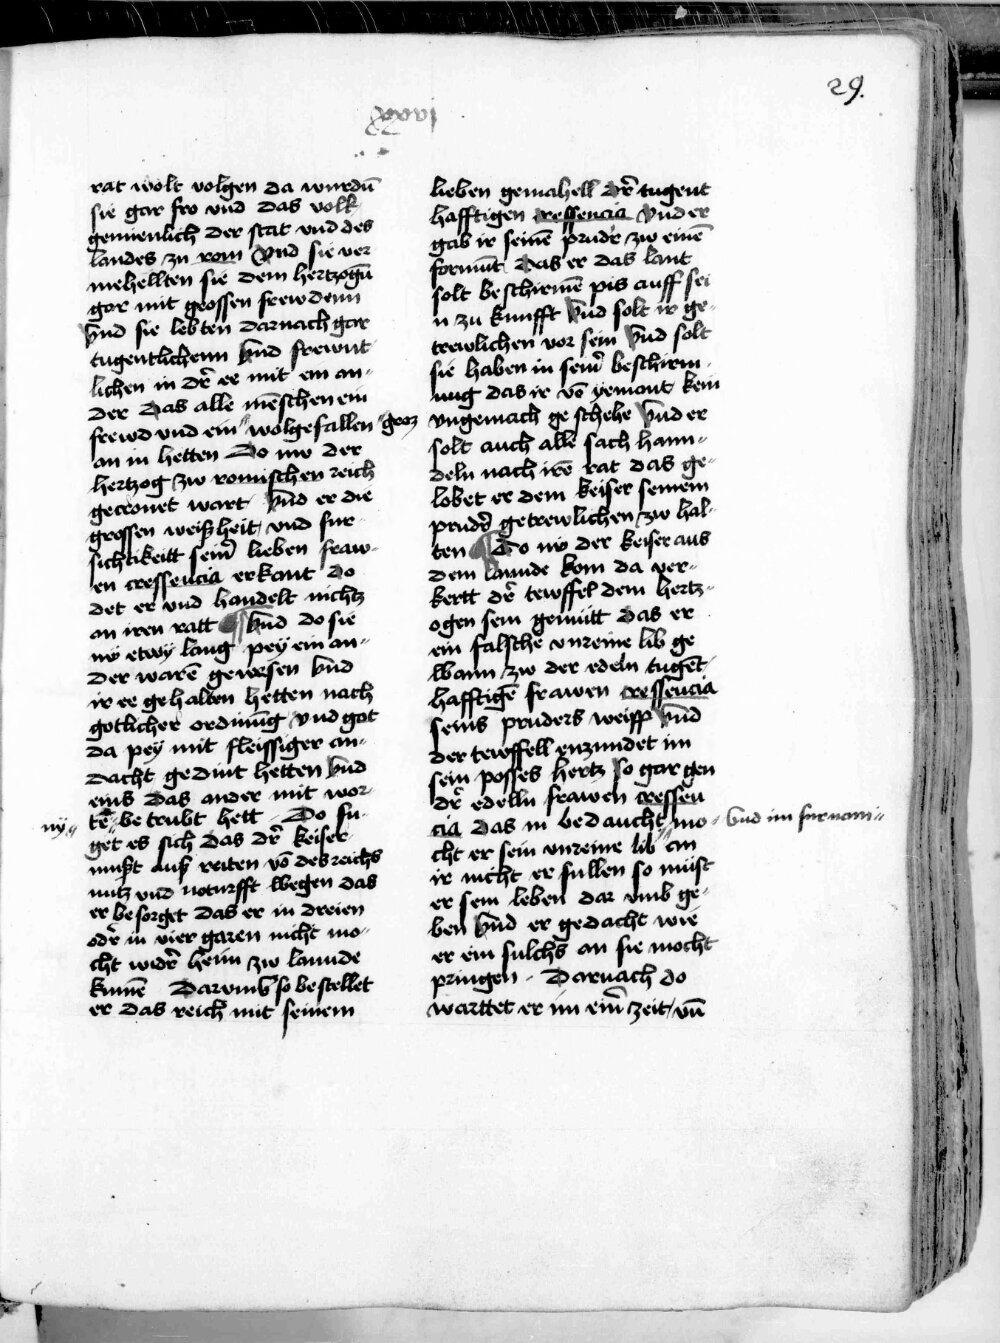 29.
xxxvi
rat wolt volgen da wurdū
sie gar fro vnd das volk
gemienlich der stat vnd des
landes zu rom Vnd sie ver
mehellten sie dem hertzogū
gar mit grossen frewdenn
Vnd sie lebten darnach gar
tugentlichenn Vnd frewnt
lichen in dr̄ ee mit ein an-
der Das alle mēschen ein
frewd vnd ein " wolgefallen " groz
an in hetten Do nw der
hertzog zw romischen reich
gecronet wart Vnd er die
grossen weißheit vnd fur-
sichtikeitt seinr̄ lieben fraw-
en cressencia erkant do
det er vnd handelt nichtz
an iren ratt ¶ Vnd do sie
nw etwy lang pey ein an-
der warē gewesen Vnd
ir ee gehalten hetten nach
gotlicher ordnūg vnd got
da pey mit fleissiger an-
dacht gedint hetten Vnd
eins das ander mit wor-
nÿe " tē " betrubt hett Do fu-
get es sich das dr̄ keiser
must auß reiten vō des reichs
nutz vnd noturfft wegen das
er besorget das er in dreien
odr̄ in vier garen nicht mo-
cht widr̄ heim zw lannde
kumē Darumb so bestellet
er das reich mit seinem
lieben gemahell dr̄ tugent
hafftigen cressencia Vnd er
gab ir seinē prudr̄ zw einē
formūt das er das lant
solt beschirmē pis auff sei
n zu kunfft Vnd solt ir ge-
trewlichen vor sein Vnd solt
sie haben in seinr̄ beschirm-
ung das ir vō yemant kein
vngemach geschehe Vnd er
solt auch alle sach hann-
deln nach irē rat das ge-
lobet er dem keiser seinem
prudr̄ getrewlichen zw hal-
ten ¶ Do nw der keiser aus
dem lannde kom da ver-
kertt dr̄ tewffel dem hertz-
ogen sein gemütt das er
ein falsche vnreine lib ge
wann zw der edeln tugēt-
hafftigē frawen cressencia
seins pruders weipp Vnd
der tewffell enzundet im
sein posses hertz so gar gen
dr̄ edelln frawen cressen
cia das in bedaucht mo- " Vnd im furnam "
cht er sein vnreine lib " an
ir nicht erfullen so müst
er sein leben dar vmb ge-
ben Vnd er gedacht wie
er ein sulchs an sie mocht
pringen Darnach do
warttet er im einr̄ zeit vn̄